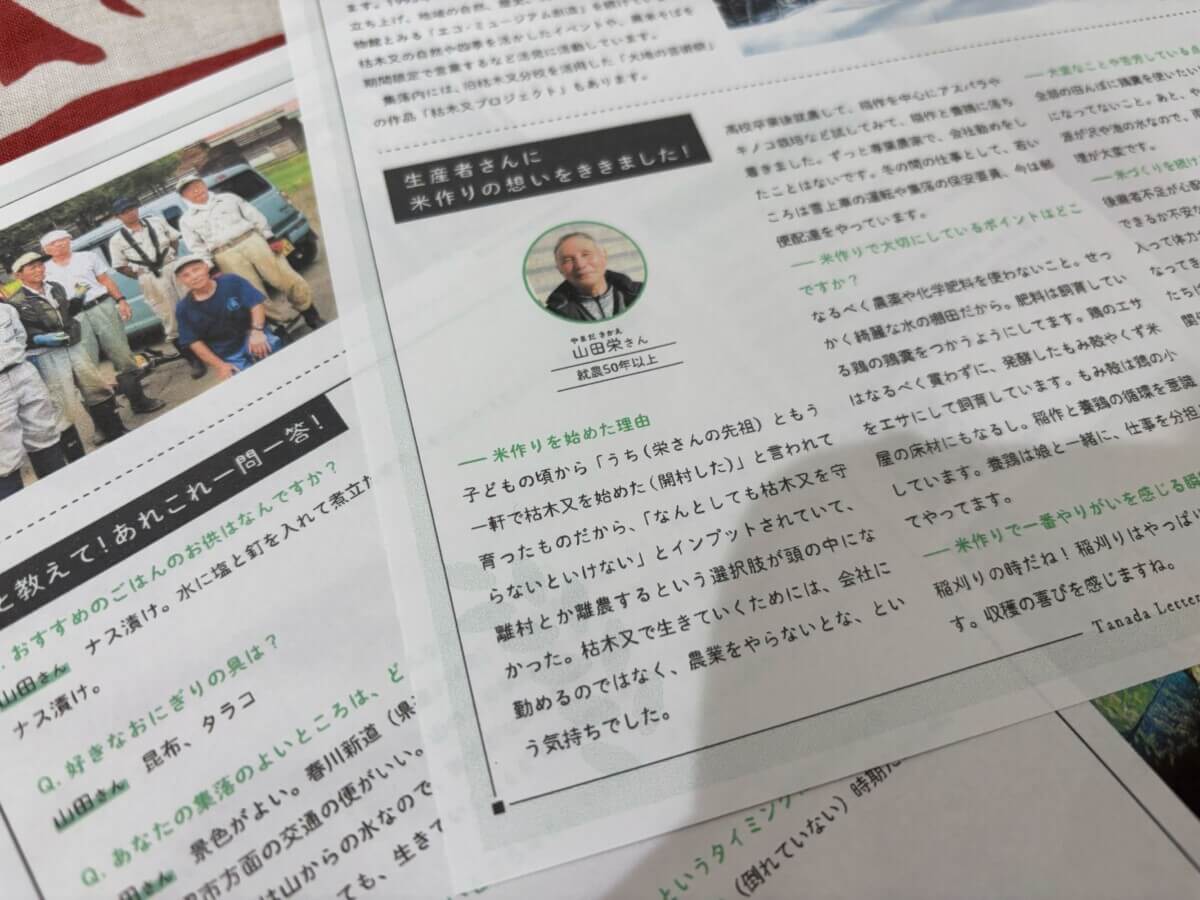 立ち上げ、地域の自然、歴史、
物館とみる「エコ・ミュージアム創造」を続けてい
枯木又の自然や四季を活かしたイベントや、農家そばを
期間限定で営業するなど活発に活動しています。
集落内には、旧枯木又分校を活用した「大地の芸術祭」
の作品「枯木又プロジェクト」もあります。
生産者さんに
米作りの想いをききました!
やまだ さかえ
山田栄さん
就農50年以上
― 米作りを始めた理由
子どもの頃から「うち(栄さんの先祖)ともう
一軒で枯木又を始めた(開村した)」と言われて
育ったものだから、「なんとしても枯木又を守
らないといけない」とインプットされていて、
離村とか離農するという選択肢が頭の中にな
かった。枯木又で生きていくためには、会社に
勤めるのではなく、農業をやらないとな、とい
う気持ちでした。
高校卒業後就農して、稲作を中心にアスパラや
キノコ栽培など試してみて、稲作と養鶏に落ち
着きました。ずっと専業農家で、会社勤めをし
たことはないです。冬の間の仕事として、若い
ころは雪上車の運転や集落の保安要員、今は郵
便配達をやっています。
― 米作りで大切にしているポイントはどこ
ですか?
なるべく農薬や化学肥料を使わないこと。せっ
かく綺麗な水の棚田だから。肥料は飼育してい
る鶏の鶏糞をつかうようにしてます。鶏のエサ
はなるべく買わずに、発酵したもみ殻やくず米
をエサにして飼育しています。もみ殻は鶏の小
屋の床材にもなるし。稲作と養鶏の循環を意識
しています。養鶏は娘と一緒に、仕事を分担
てやってます。
― 米作りで一番やりがいを感じる瞬
稲刈りの時だね!稲刈りはやっぱり
す。収穫の喜びを感じますね。
Tanada Letter
― 大変なことや苦労している
全部の田んぼに鶏糞を使いたい
になってないこと。あと、
源が沢や池の水なので、
理が大変です。
― 米づくりを続け
後継者不足が心配
できるか不安
入って体力
なってき
たち
と教えて!あれこれ一問一答!
おすすめのごはんのお供はなんですか?
山田さん ナス漬け。水に塩と釘を入れて煮立
ナス漬け。
Q. 好きなおにぎりの具は?
山田さん 昆布、タラコ
Q. あなたの集落のよいところは、ど
田さん 景色がよい。春川新道(県
市方面の交通の便がいい。
は山からの水なので
ても、生きて
というタイミング
(倒れていない)時期